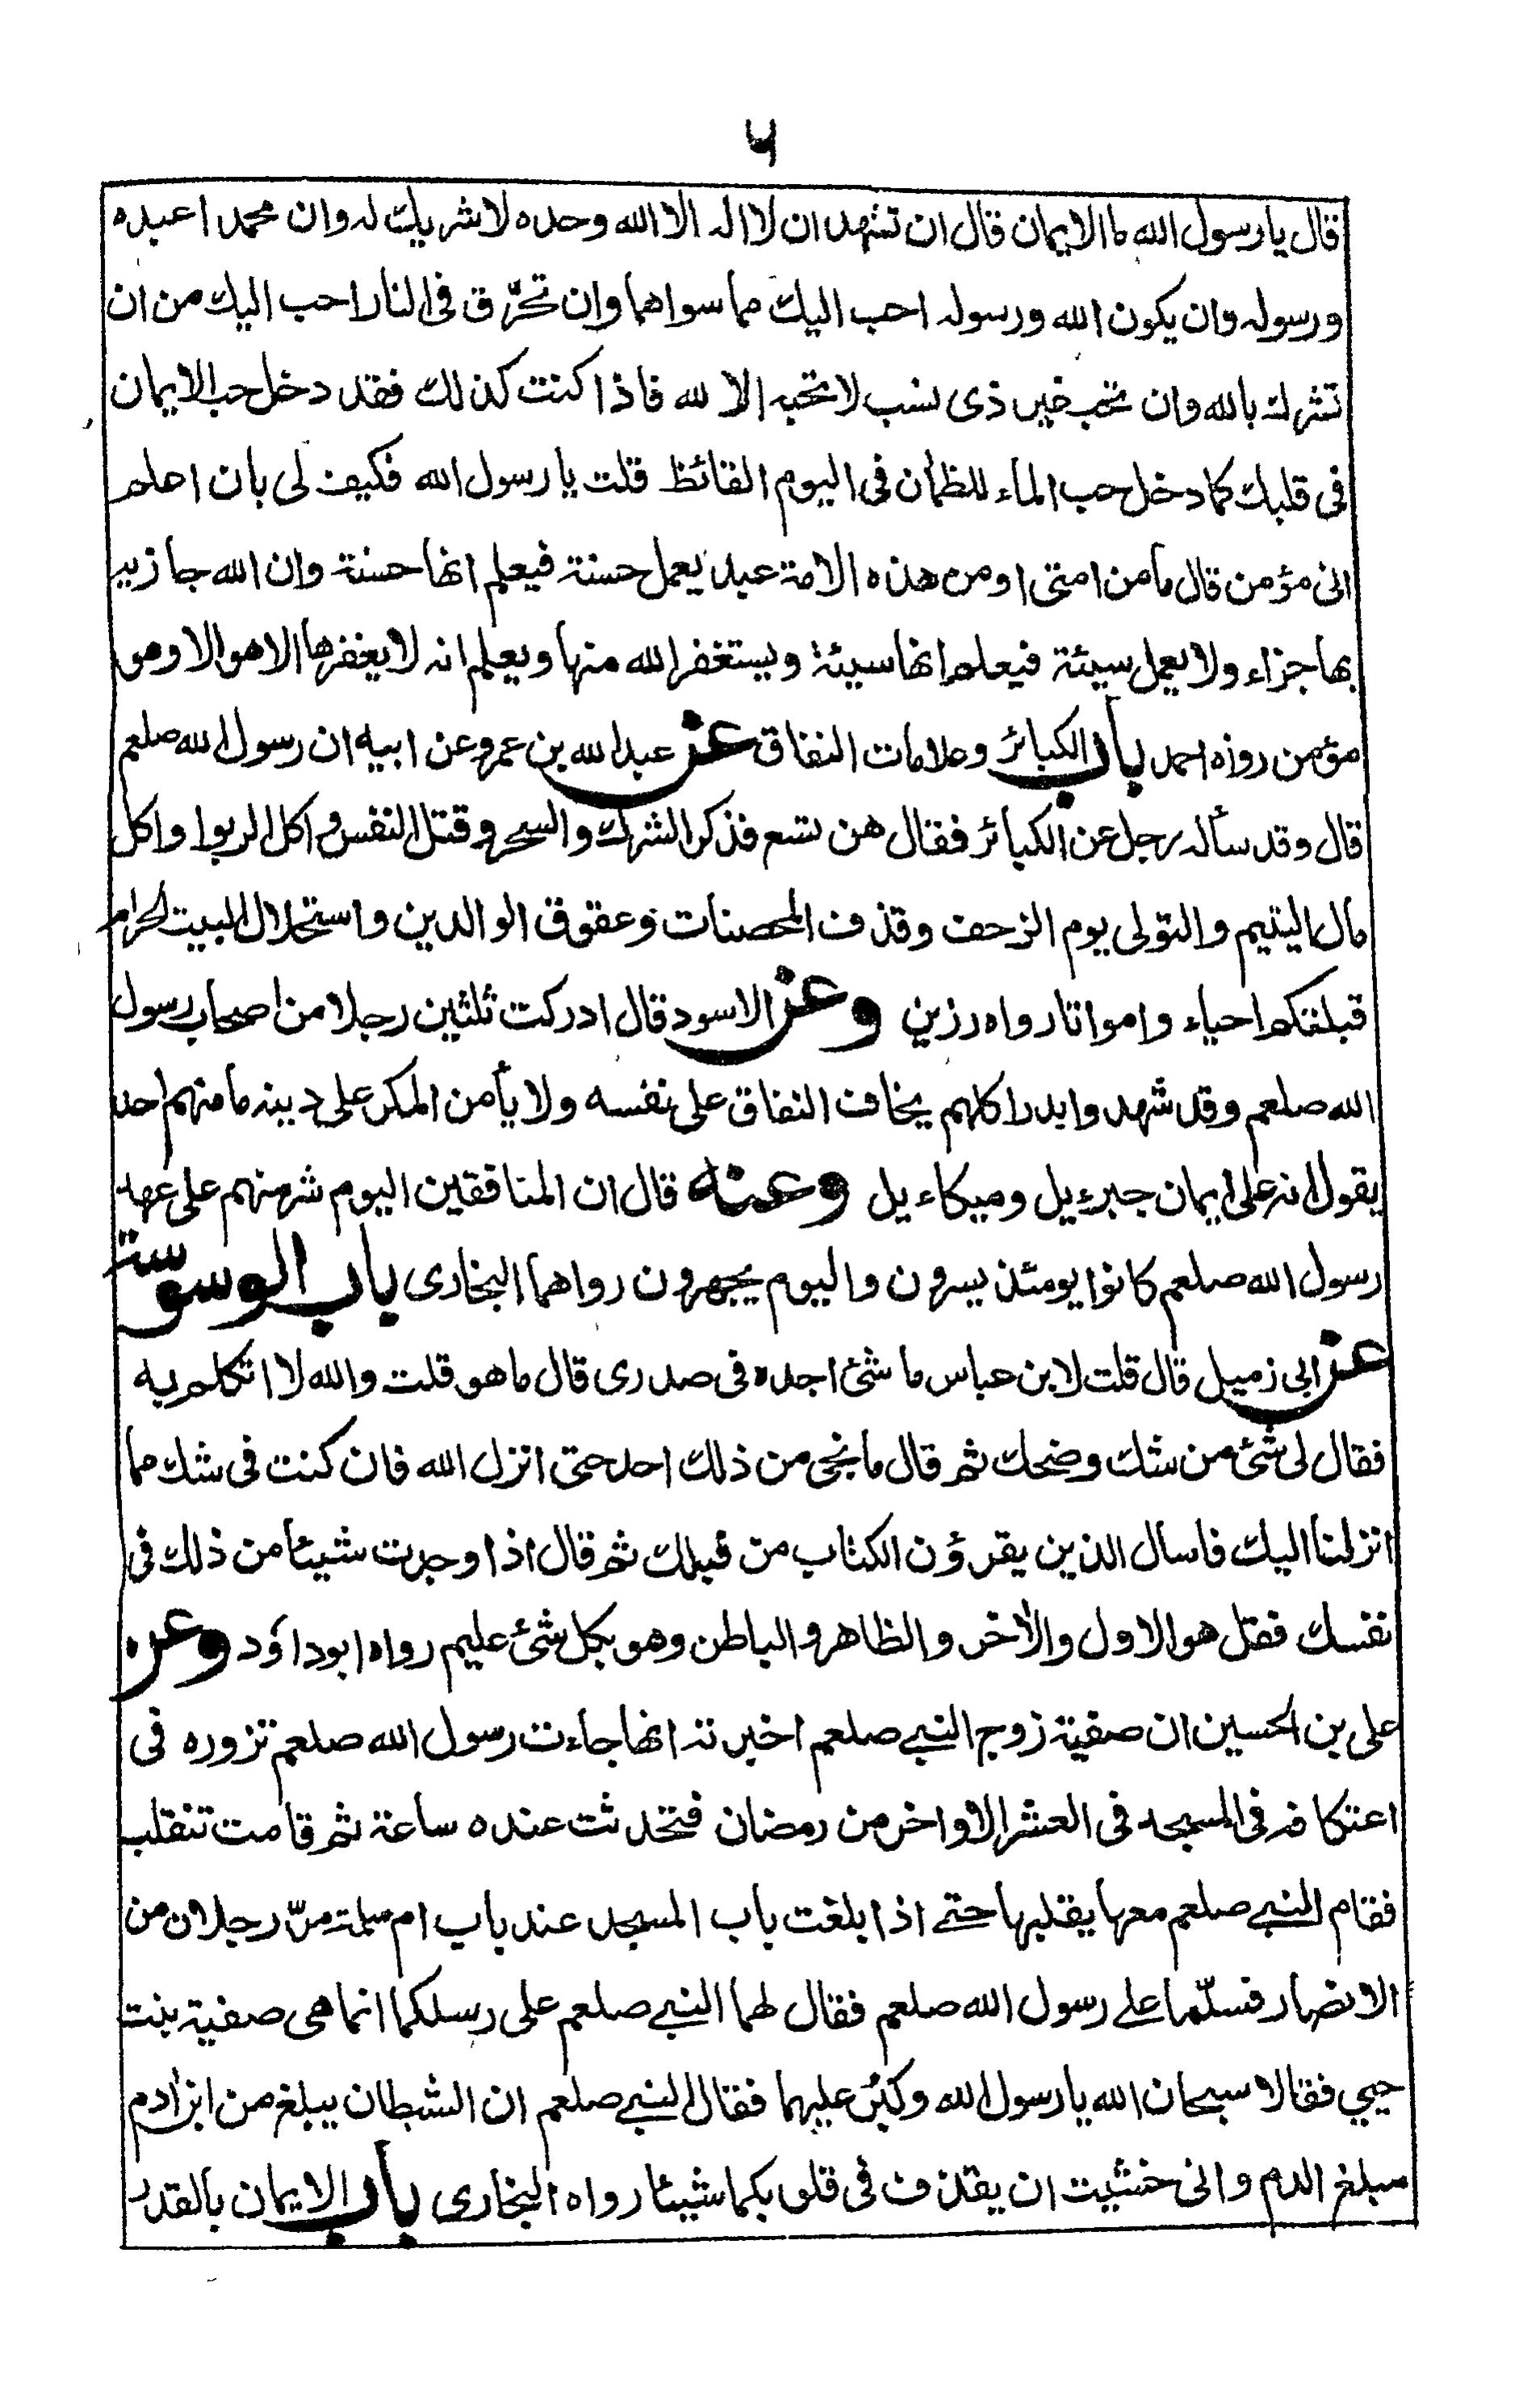 ٦
قال يا رسول الله ما الايمان قال ان تشهد ان لا اله الا الله وحده لا شريك له وان محمدا عبده
ورسوله وان يكون الله ورسوله احب اليك مما سواهما وان تحرّق فى النار احب اليك من ان
تشرك بالله وان تحب غير ذى نسب لا تحبه الا لله فاذا كنت كذلك فقد دخل حب الايمان
فى قلبك كما دخل حب الماء للظمأن فى اليوم القائظ قلت يا رسول الله فكيف لى بان اعلم
انى مؤمن قال ما من امتى او من هذه الامة عبد يعمل حسنة فيعلم انها حسنة وان الله جازيه
بها جزاء ولا يعمل سيئة فيعلم انها سيئة ويستغفر الله منها ويعلم انه لا يغفرها الا هو الا وهو
مؤمن رواه احمد باب الكبائر وعلامات النفاق عن عبد الله بن عمرو عن ابيه ان رسول الله صلعم
قال وقد سأله رجل عن الكبائر فقال هن تسع فذكر الشرك والسحر وقتل النفس و اكل الربوا واكل
مال اليتيم والتولى يوم الزحف وقذف المحصنات وعقوق الوالدين واستحلال البيت الحرام
قبلتكم احياء وامواتا رواه رزين وعن الاسود قال ادركت ثلثين رجلا من اصحاب رسول
الله صلعم وقد شهدوا بدرا كلهم يخاف النفاق على نفسه ولا يأمن المكر على دينه ما منهم احد
يقول انه على ايمان جبرءيل وميكاءيل وعنه قال ان المنافقين اليوم شر منهم على عهد
رسول الله صلعم كانوا يومئذ يسرون واليوم يجهرون رواهما البخارى باب الوسوسة
عن ابى زميل قال قلت لابن عباس ما شئ اجده فى صدرى قال ما هو قلت والله لا اتكلم به
فقال لى شئ من شك وضحك ثم قال ما نجى من ذلك احد حتى انزل الله فان كنت فى شك مما
انزلنا اليك فاسال الذين يقرؤن الكتاب من قبلك ثم قال اذا وجدت شيئا من ذلك فى
نفسك فقل هو الاول والأخر والظاهر والباطن وهو بكل شئ عليم رواه ابو داؤد وعن
على بن الحسين ان صفية زوج النبے صلعم اخبرته انها جاءت رسول الله صلعم تزوره فى
اعتكافه فى المسجد فى العشر الاواخر من رمضان فتحدثت عنده ساعة ثم قامت تنقلب
فقام النبے صلعم معها يقلبها حتے اذا بلغت باب المسجد عند باب ام سلمة مرّ رجلان من
الانصار فسلّما علے رسول الله صلعم فقال لهما النبے صلعم على رسلكما انما هى صفية بنت
حيي فقالا سبحان الله يا رسول الله وكبر عليهما فقال النبے صلعم ان الشيطان يبلغ من ابن أدم
مبلغ الدم وانى خشيت ان يقذف فى قلوبكما شيئا رواه البخارى باب الايمان بالقدر